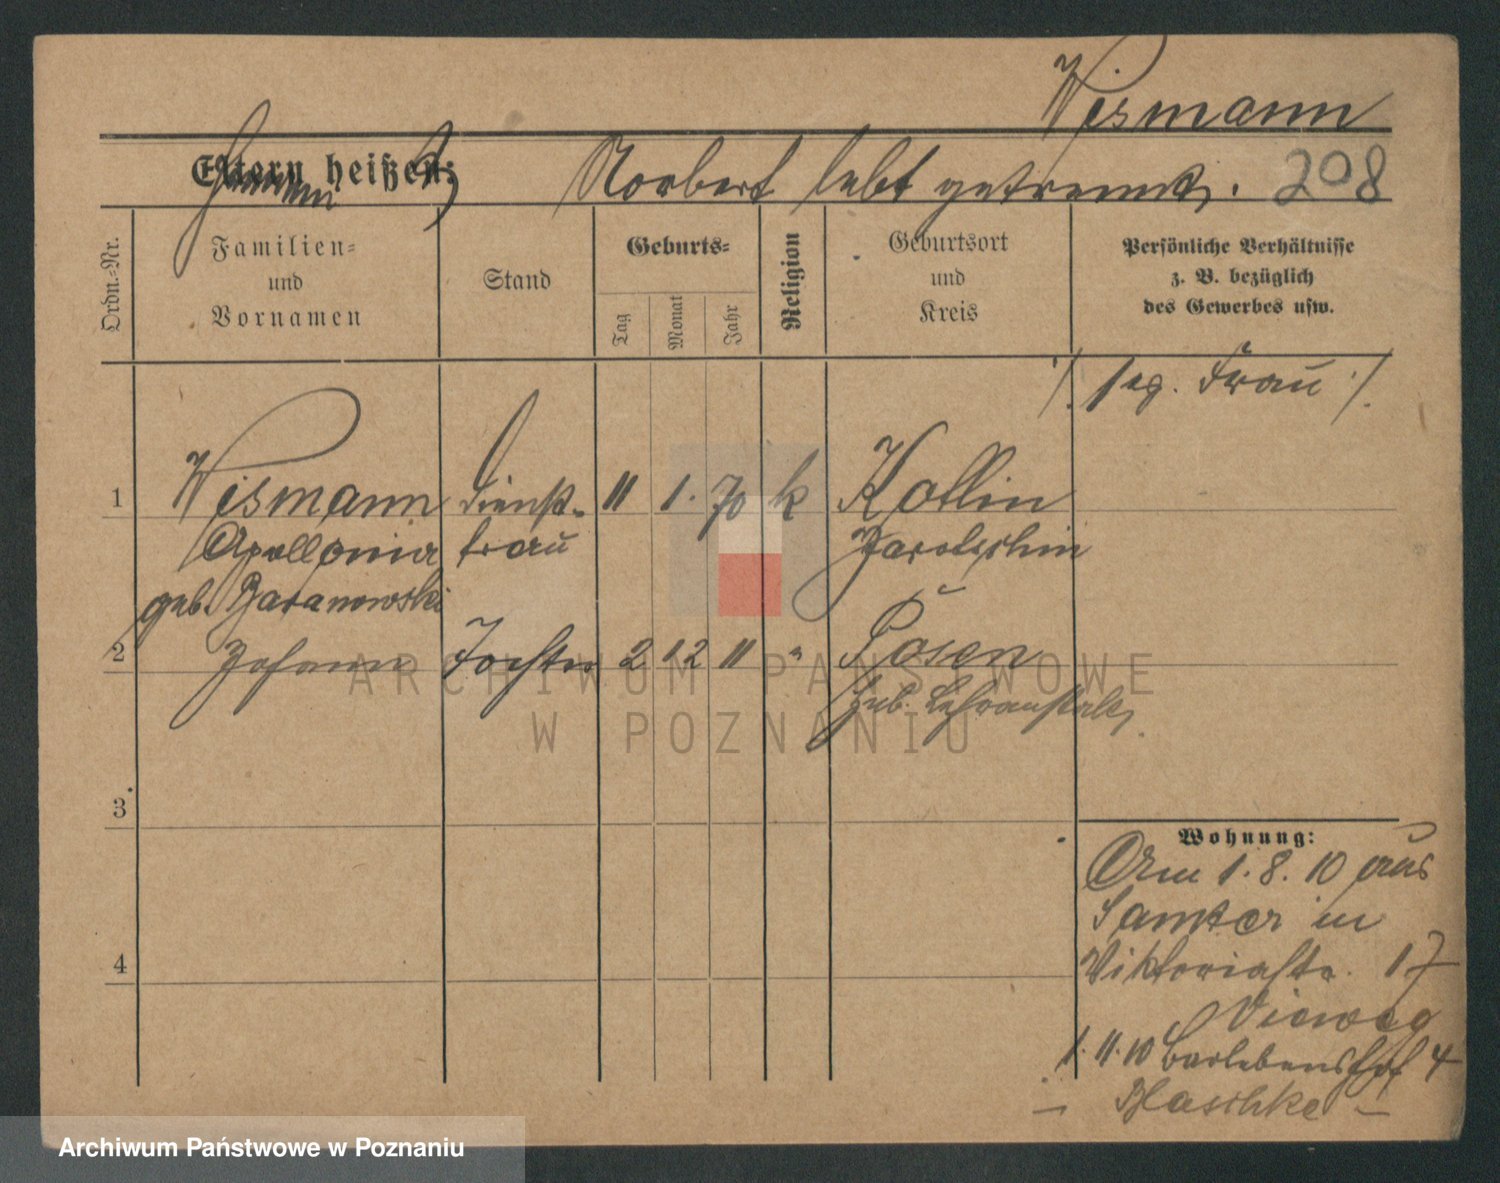 Wismann
Eltern heißen: Norbert lebt getrennt. 208
Ordn.=Nr.
Familien=
und
Vornamen
Stand
Geburts=
Tag
Monat
Jahr
Religion
Geburtsort
und
Kreis
Persönliche Verhältnisse
z. B. bezüglich
des Gewerbes usw.
/. sep. Frau ./.
1 Wismann Dienst- 11 1. 70 k Kollin
Apollonia frau Jarotschin
geb. Baranowski
2 Johann Tochter 2 12 11 " Posen
Heb. Lehranstalt
3
4
Wohnung:
Am 1.8.10 aus
Samter in
Viktoriastr. 17
Vieweg
1.11.10 Barlebenshof 4
– Blaschke –
ARCHIWUM PAŃSTWOWE
W POZNANIU
Archiwum Państwowe w Poznaniu